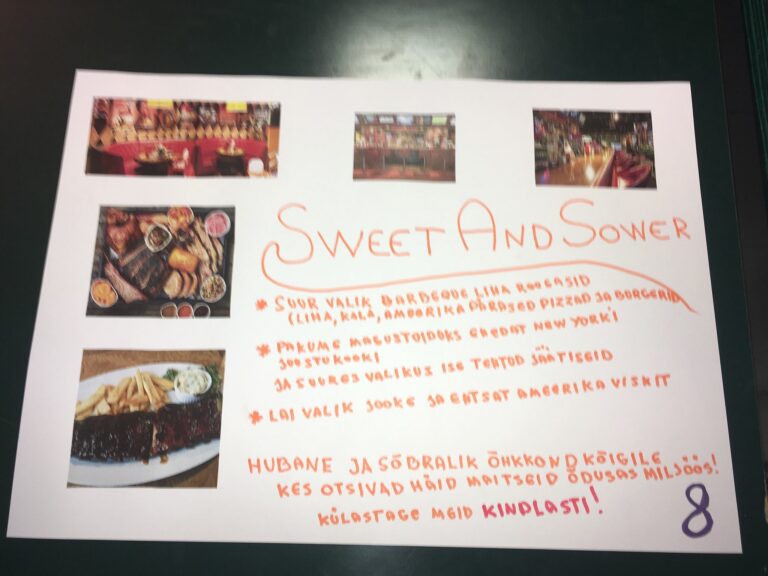 SWEET AND SOWER
* SUUR VALIK BARBEQUE LIHA ROOGASID
(LIHA, KALA, AMEERIKA PÄRASED PIZZAD JA BURGERID
* PAKUME MAGUSTOIDUKS EHEDAT NEW YORK'I
JUUSTUKOOKI
JA SUURES VALIKUS ISE TEHTUD JÄÄTISEID
* LAI VALIK JOOKE JA EHTSAT AMEERIKA VISKIT
HUBANE JA SÕBRALIK ÕHKKOND KÕIGILE
KES OTSIVAD HÄID MAITSEID ÕDUSAS MILJÖÖS!
KÜLASTAGE MEID KINDLASTI!
8